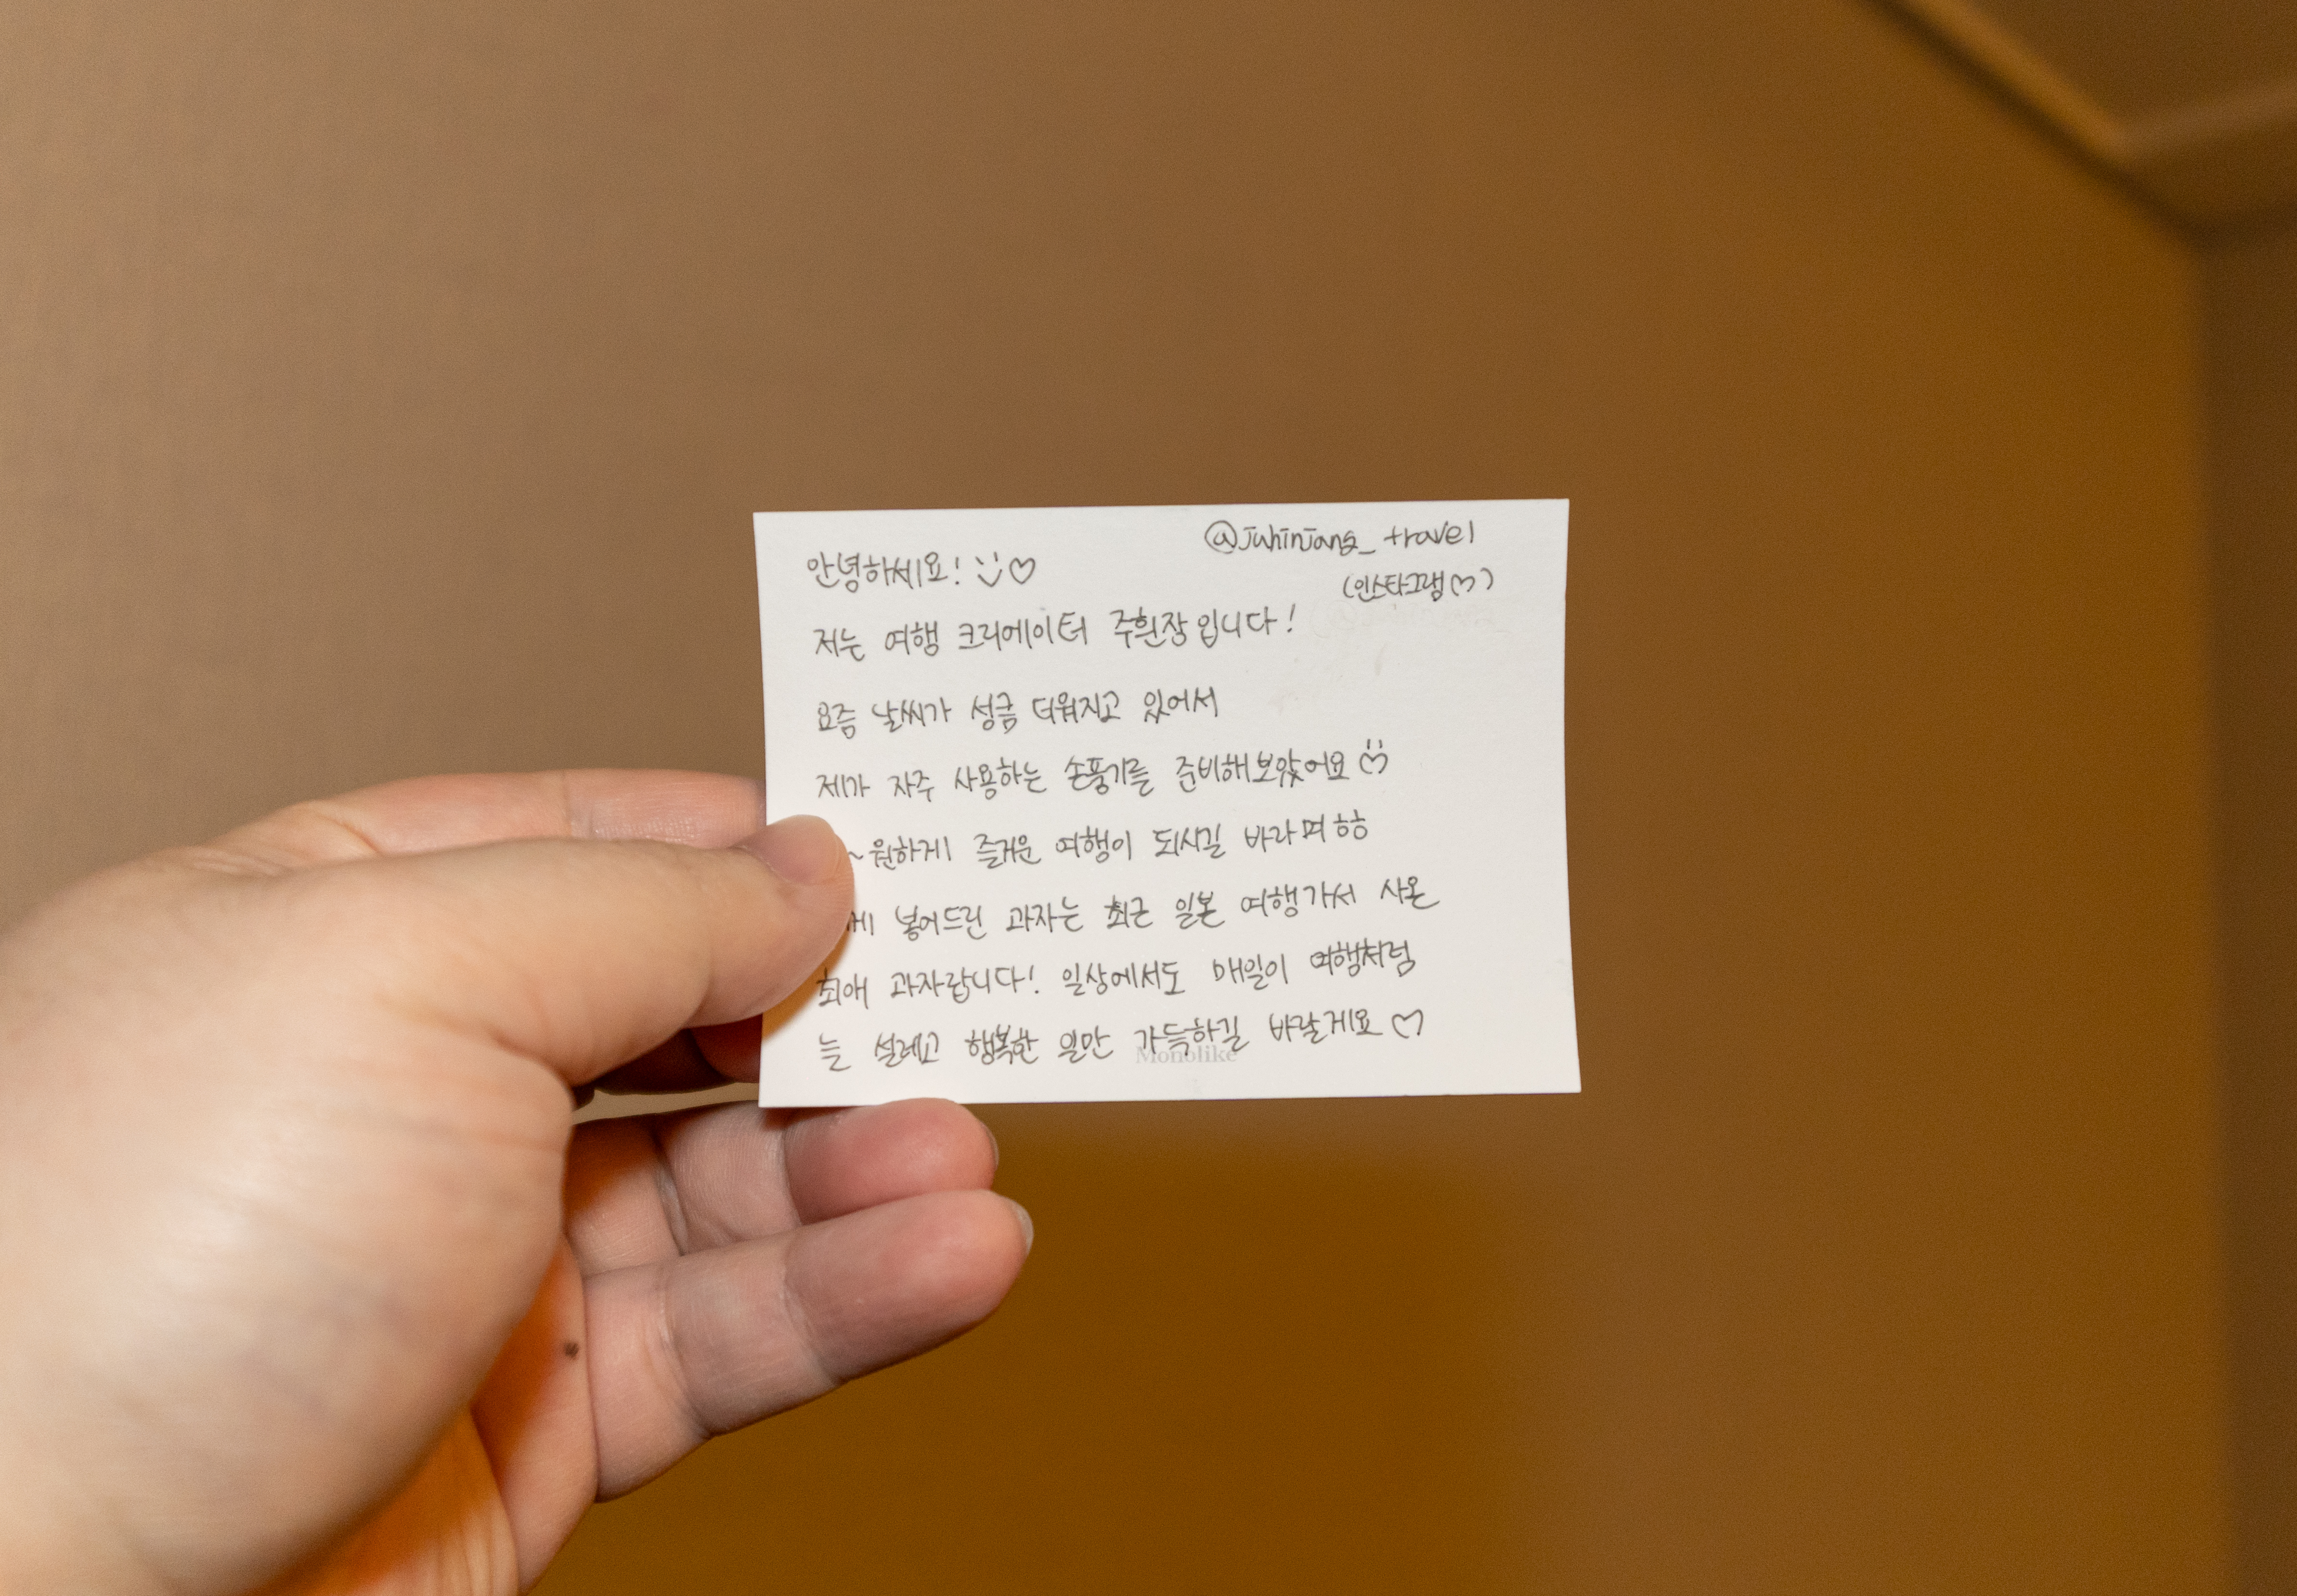 @juhinjang_travel
(인스타그램♡)
안녕하세요! :)♡
저는 여행 크리에이터 주힌장입니다!
요즘 날씨가 성큼 더워지고 있어서
제가 자주 사용하는 손풍기를 준비해보았어요
~원하게 즐거운 여행이 되시길 바라며 ㅎㅎ
넣어드린 과자는 최근 일본 여행가서 사온
최애 과자랍니다! 일상에서도 매일이 여행처럼
늘 설레고 행복한 일만 가득하길 바랄게요♡
Monolike